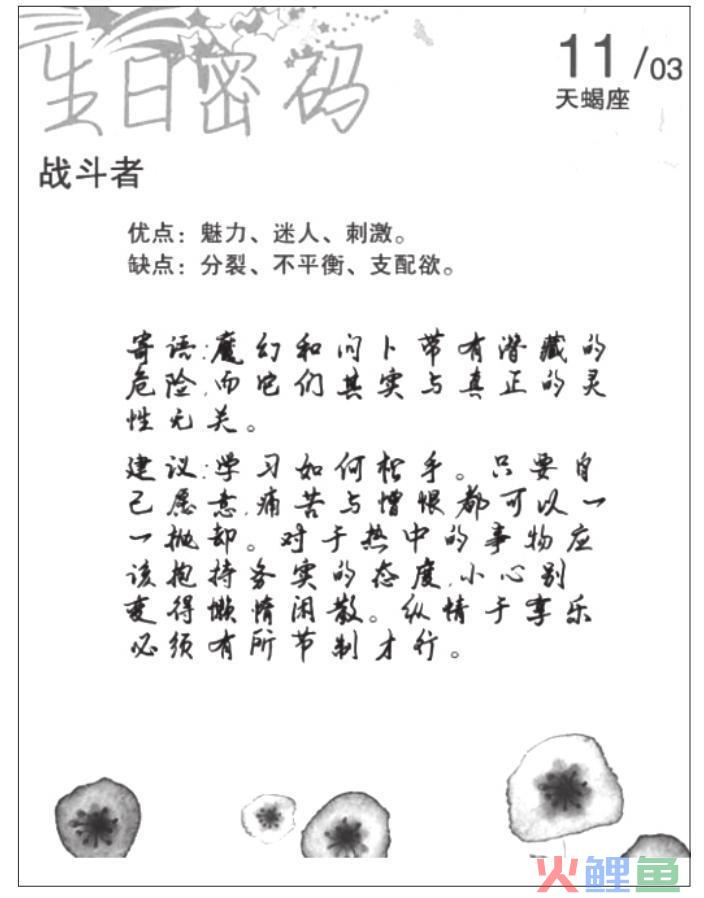 生日密码
11/03
天蝎座
战斗者
优点：魅力、迷人、刺激。
缺点：分裂、不平衡、支配欲。
寄语：魔幻和问卜带有潜藏的
危险，而它们其实与真正的灵
性无关。
建议：学习如何松手。只要自
己愿意，痛苦与憎恨都可以一
一抛却。对于热中的事物应
该抱持务实的态度，小心别
变得懒惰闲散。纵情于享乐
必须有所节制才行。
火鲤鱼